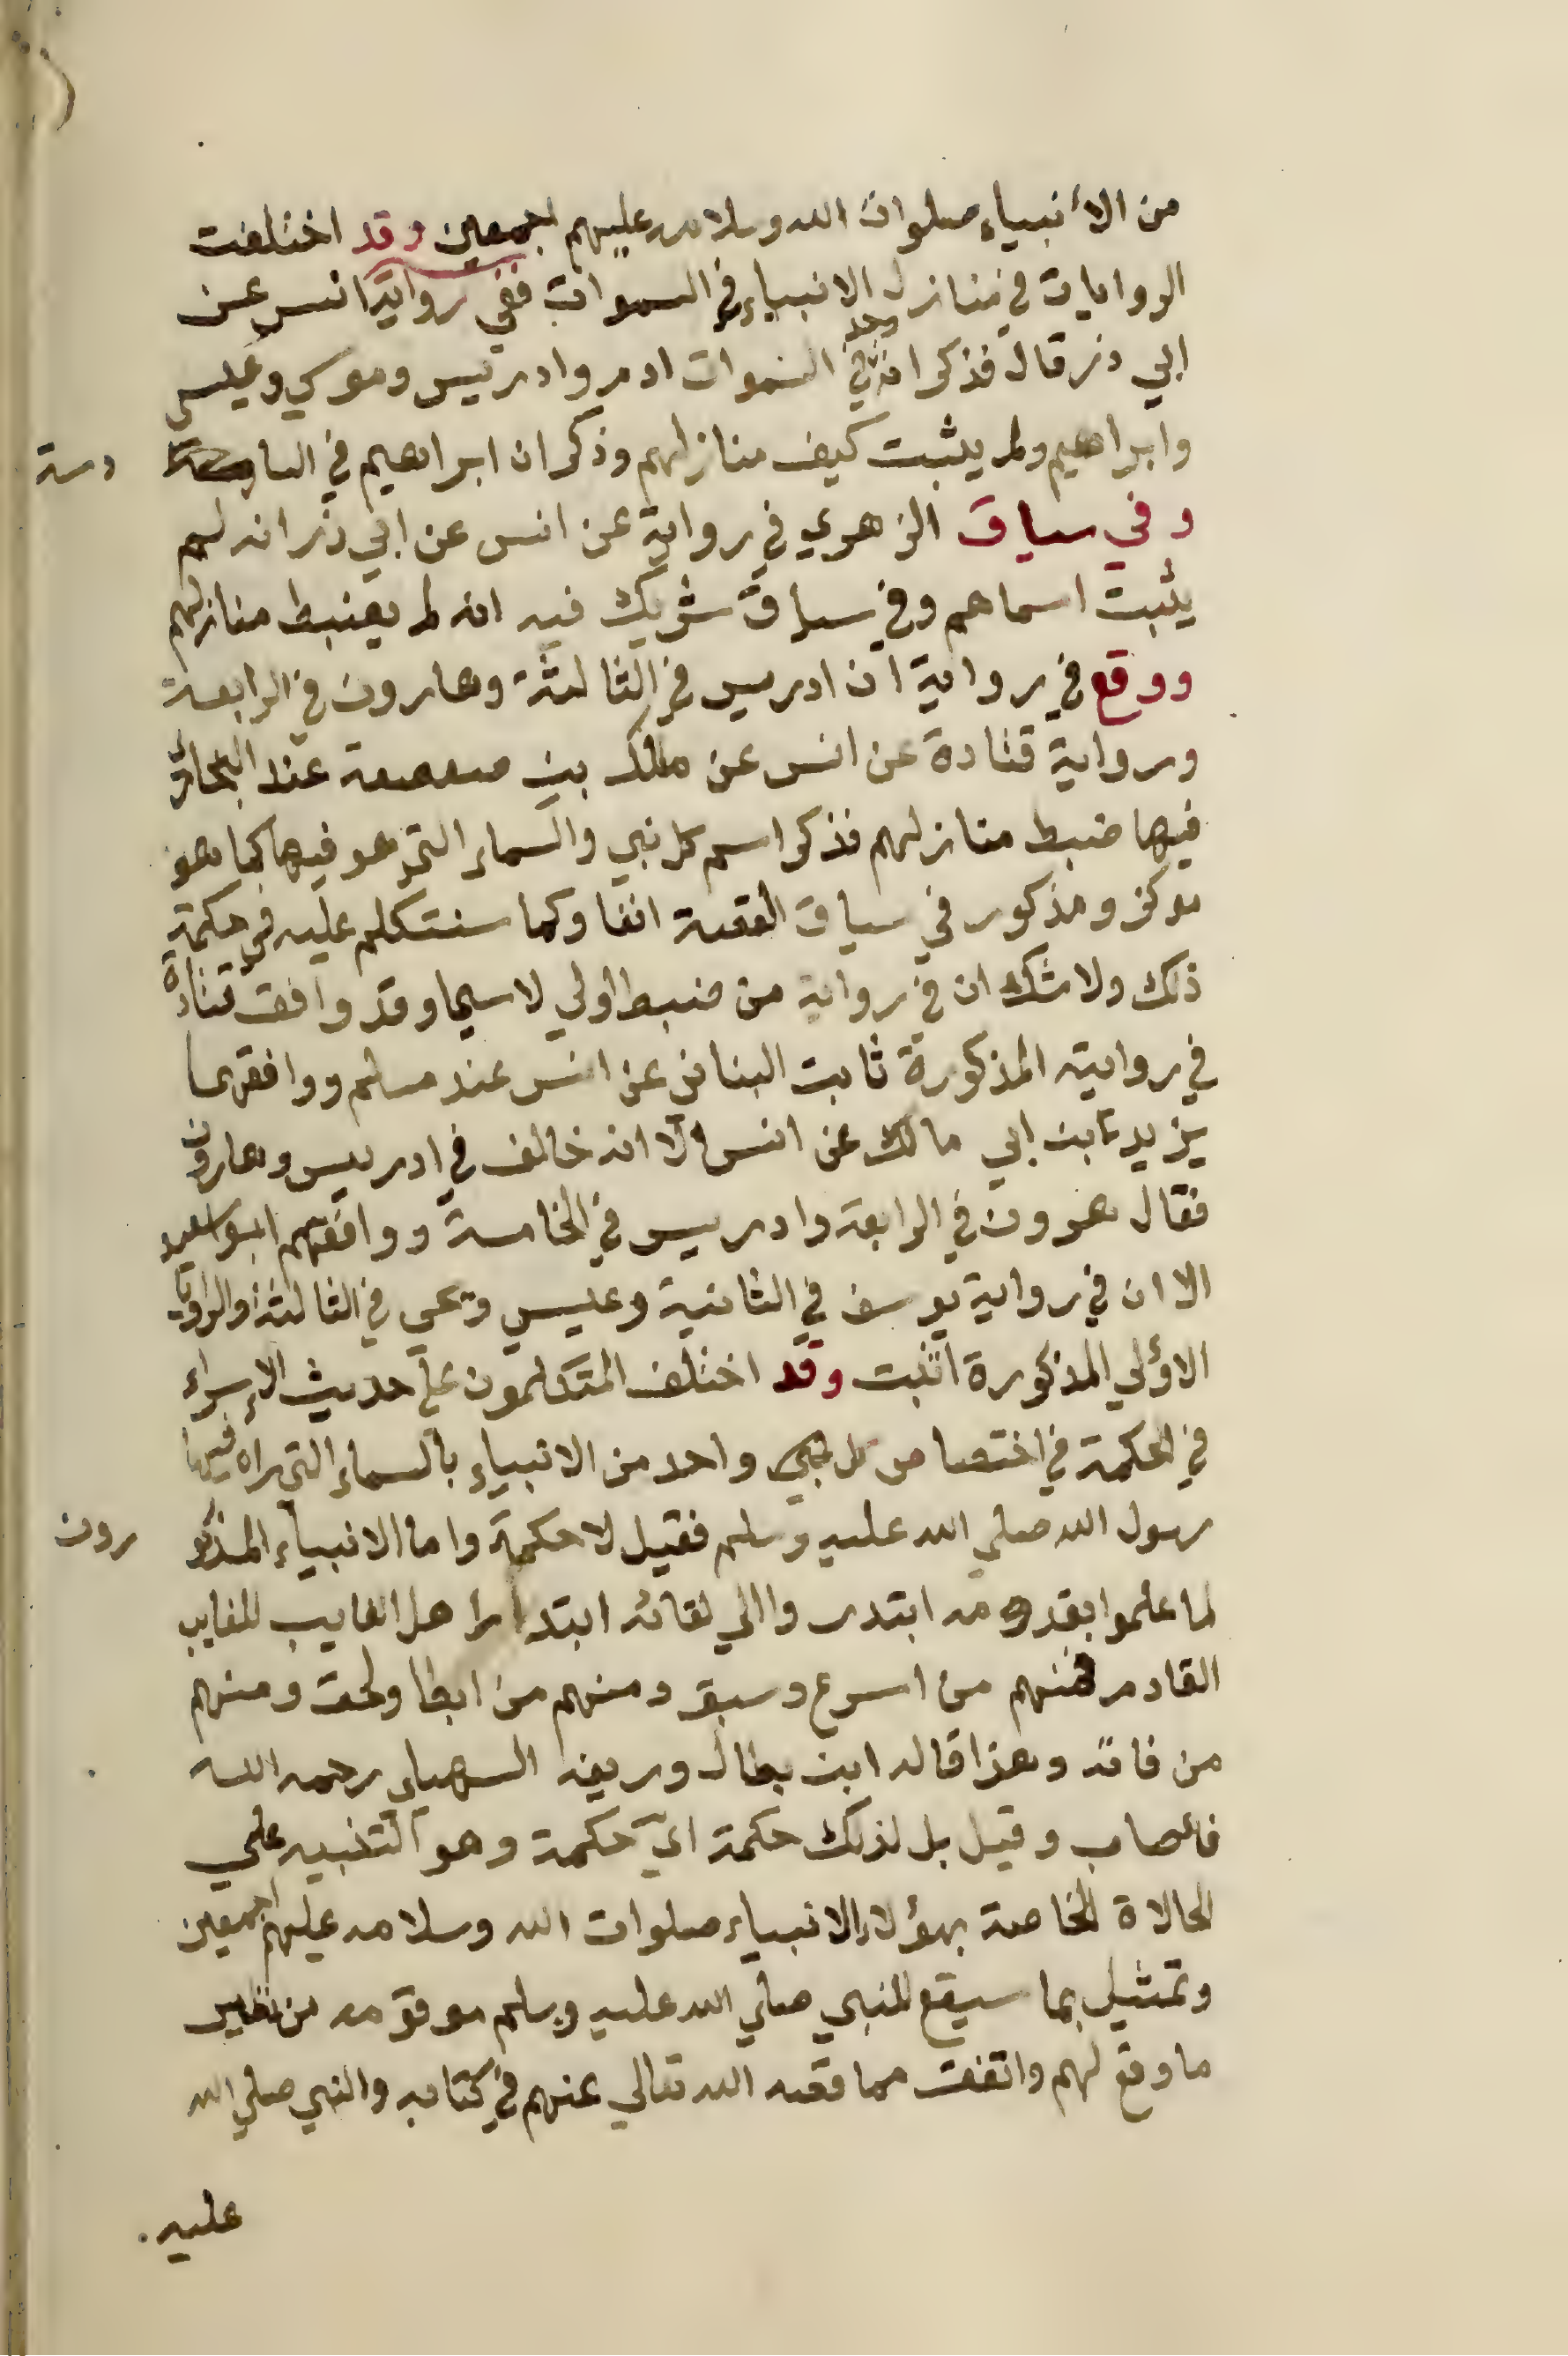 من الأنبياء صلوات الله وسلامه عليهم اجمعين وقد اختلفت
الروايات في منازل الانبياء في السموات ففي رواية انس عن
ابي ذر قال فذكر انه وجد في السموات ادم وادريس وموسي وعيسي
وابراهيم ولم يثبت كيف منازلهم وذكر ان ابراهيم في السا دسة
وفي سياق الزهري في رواية عن انس عن ابي ذر انه لم
يثبت اسماهم وفي سياق شريك فيه انه لم يضبط منازلهم
ووقع في رواية ان ادريس في الثالثة وهارون في الرابعة
ورواية قتادة عن انس عن مالك بن صعصعة عند البخاري
فيها ضبط منازلهم فذكر اسم كل نبي والسماء التي هو فيها كما هو
مركز ومذكور في سياق القصة انفا وكما سنتكلم عليه في حكمة
ذلك ولا شك ان في رواية من ضبط اولي لا سيما وقد وافق قتادة
في روايته المذكورة ثابت البناني عن انس عند مسلم ووافقهما
يزيد بن ابي مالك عن انس الا انه خالف في ادريس وهارون
فقال هرون في الرابعة وادريس في الخامسة ووافقهم ابو سعيد
الا ان في رواية يوسف في الثانية وعيسي ويحي في الثالثة والرواية
الاولي المذكورة اثبت وقد اختلف المتكلمون علي حديث الإسراء
في الحكمة في اختصاص كل نبي واحد من الانبياء بالسماء التي راه فيها
رسول الله صلي الله عليه وسلم فقيل لا حكمة واما الانبياء المذكو رون
لما علموا بقدومه ابتدروا الي لقائه ابتدار اهل الغايب للغايب
القادم فمنهم من اسرع وسبق ومنهم من ابطا ولحق ومنهم
من فاته وهذا قاله ابن بطال وريفه السهيلي رحمه الله
فاصاب وقيل بل لذلك حكمة اي حكمة وهو التنبيه علي
الحالاة الخاصة بهؤلاء الانبياء صلوات الله وسلامه عليهم اجمعين
وتمثيل بما سيقع للنبي صلي الله عليه وسلم مع قومه من نظير
ما وقع لهم واتفقت مما قصه الله تعالي عنهم في كتابه والنبي صلي الله
عليه